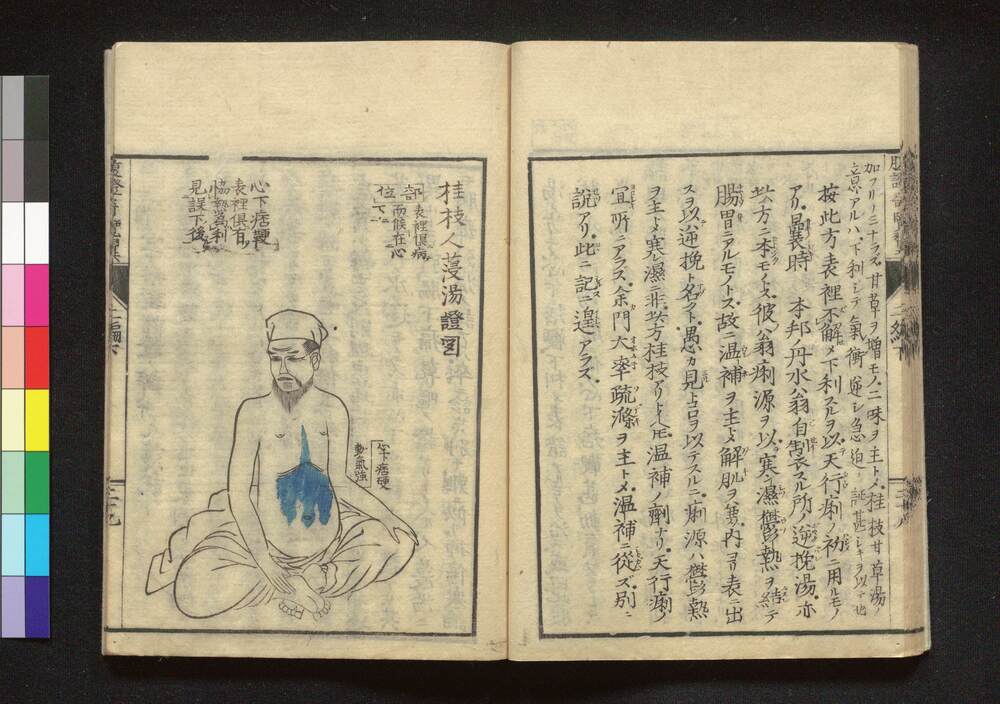 加フリーニナラズ甘草ヲ增モノ二味ヲ主トメ桂枝甘草湯ノ
意アルハ下利シテ氣衝逆シ急迫ノ證甚シキヲ以テ也
按此方表裡不解メ下利スルヲ以天行痢ノ初ニ用ルモノ
アリ曩時 本邦ノ丹水翁自製スル所ノ逆挽湯亦
此方ニ本モノトス彼翁痢源ヲ以寒濕鬱熱ヲ結テ
腸胃ニアルモノトス故ニ温補ヲ主トメ解肌ヲ兼内ヨリ表ニ出
スヲ以逆挽ト名ク愚カ見トコロヲ以テスルニ痢源ハ鬱熱
ヲ主トメ寒濕ニ非此方桂枝アリト雖温補ノ劑ナリ天行痢ノ
宜所ニアラズ余門大率疏滌ヲ主トメ温補ニ從ズ別ニ
說アリ此ニ記ニ遑アラズ
桂枝人蔆湯證圖
部位
表裡俱病
而候在心
下
心下痞鞕
表裡俱有
協熱爲利
見誤下後
心下痞硬
動氣強